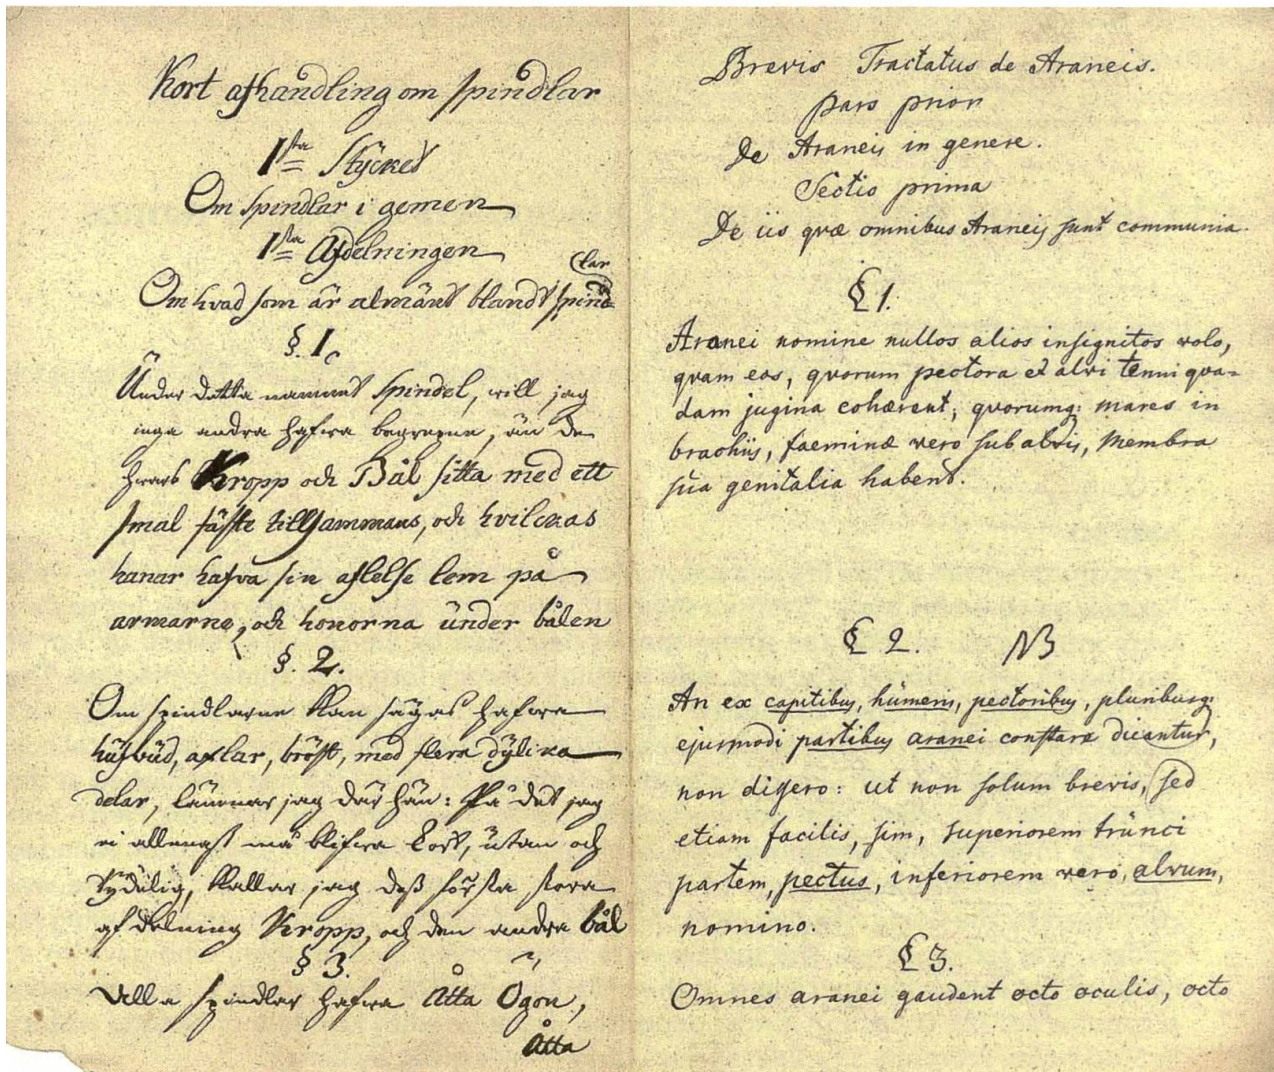 Kort afhandling om spindlar
1sta Stÿcket
Om Spindlar i gemen
1sta Afdelningen
Om hvad som är almänt blandt spind-
lar
§. 1.
Ünder detta namnet Spindel, will jag
inga andra hafwa begrepne, än de
hwars Kropp och Bål sitta med ett
smal fäste tillsammans, och hvilckas
hanar hafva sin aflelse lem på
armarne, och honorna ünder bålen
§. 2.
Om spindlarne kan sägas hafwa
hüfvüd, axlar, bröst, med flera dÿlika
delar, lämnar jag därhän: På det jag
ei allenast må blifwa kort, ütan och
tÿdelig, kallar jag deß första stora
afdelning Kropp, och den andra bål
§ 3.
Alla spindlar hafwa Åtta Ögon,
Åtta
Brevis Tractatus de Araneis.
pars prior
De Araneis in genere.
Sectio prima
De iis qvæ omnibus Araneis sunt communia.
§ 1.
Aranei nomine nullos alios insignitos volo,
qvam eos, qvorum pectora et alvi tenui qva=
dam jugina cohærent, qvorumq: mares in
brachiis, faeminæ vero sub alvis, membra
sua genitalia habent.
§ 2. NB
An ex capitibus, hümeris, pectoribus, pluribusq:
ejusmodi partibus aranei constare dicantur,
non digero: ut non solum brevis, sed
etiam facilis, sim, superiorem trünci
partem, pectus, inferiorem vero, alvum,
nomino.
§ 3.
Omnes aranei gaudent octo oculis, octo